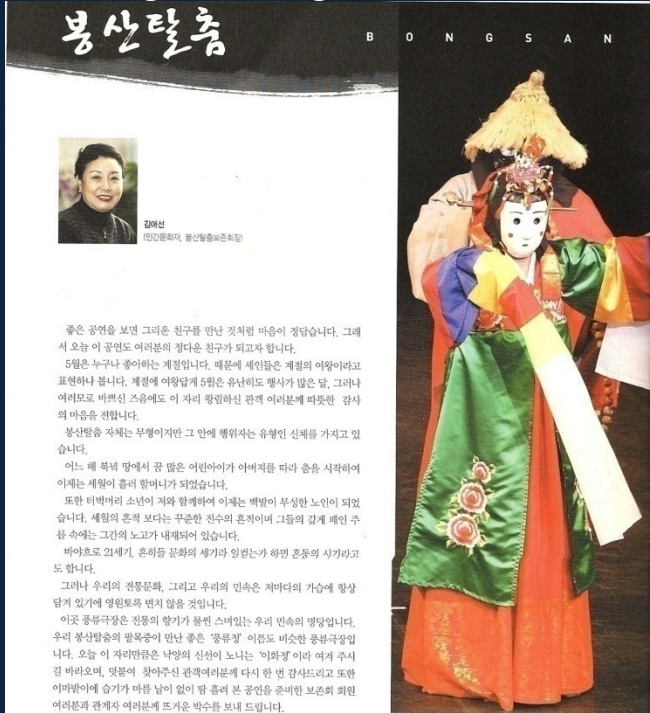 봉산탈춤
BONGSAN
김애선
(인간문화재, 봉산탈춤보존회장)
좋은 공연을 보면 그리운 친구를 만난 것처럼 마음이 정답습니다. 그래
서 오늘 이 공연도 여러분의 정다운 친구가 되고자 합니다.
5월은 누구나 좋아하는 계절입니다. 때문에 세인들은 계절의 여왕이라고
표현하나 봅니다. 계절에 여왕답게 5월은 유난히도 행사가 많은 달, 그러나
여러모로 바쁘신 즈음에도 이 자리 왕림하신 관객 여러분께 따뜻한 감사
의 마음을 전합니다.
봉산탈춤 자체는 무형이지만 그 안에 행위자는 유형인 신체를 가지고 있
습니다.
어느 해 북녘 땅에서 꿈 많은 어린아이가 아버지를 따라 춤을 시작하여
이제는 세월이 흘러 할머니가 되었습니다.
또한 터벅머리 소년이 저와 함께하여 이제는 백발이 무성한 노인이 되었
습니다. 세월의 흔적 보다는 꾸준한 전수의 흔적이며 그들의 깊게 패인 주
름 속에는 그간의 노고가 내재되어 있습니다.
바야흐로 21세기. 흔히들 문화의 세기라 일컫는가 하면 혼동의 시기라고
도 합니다.
그러나 우리의 전통문화, 그리고 우리의 민속은 저마다의 가슴에 항상
담겨 있기에 영원토록 변치 않을 것입니다.
이곳 풍류극장은 전통의 향기가 물씬 스며있는 우리 민속의 명당입니다.
우리 봉산탈춤의 팔목중이 만난 좋은 '풍류정' 이름도 비슷한 풍류극장입
니다. 오늘 이 자리만큼은 낙양의 신선이 노니는 '이화정' 이라 여겨 주시
길 바라오며, 덧붙여 찾아주신 관객여러분께 다시 한 번 감사드리고 또한
이마받이에 습기가 마를 날이 없이 땀 흘려 본 공연을 준비한 보존회 회원
여러분과 관계자 여러분께 뜨거운 박수를 보내 드립니다.